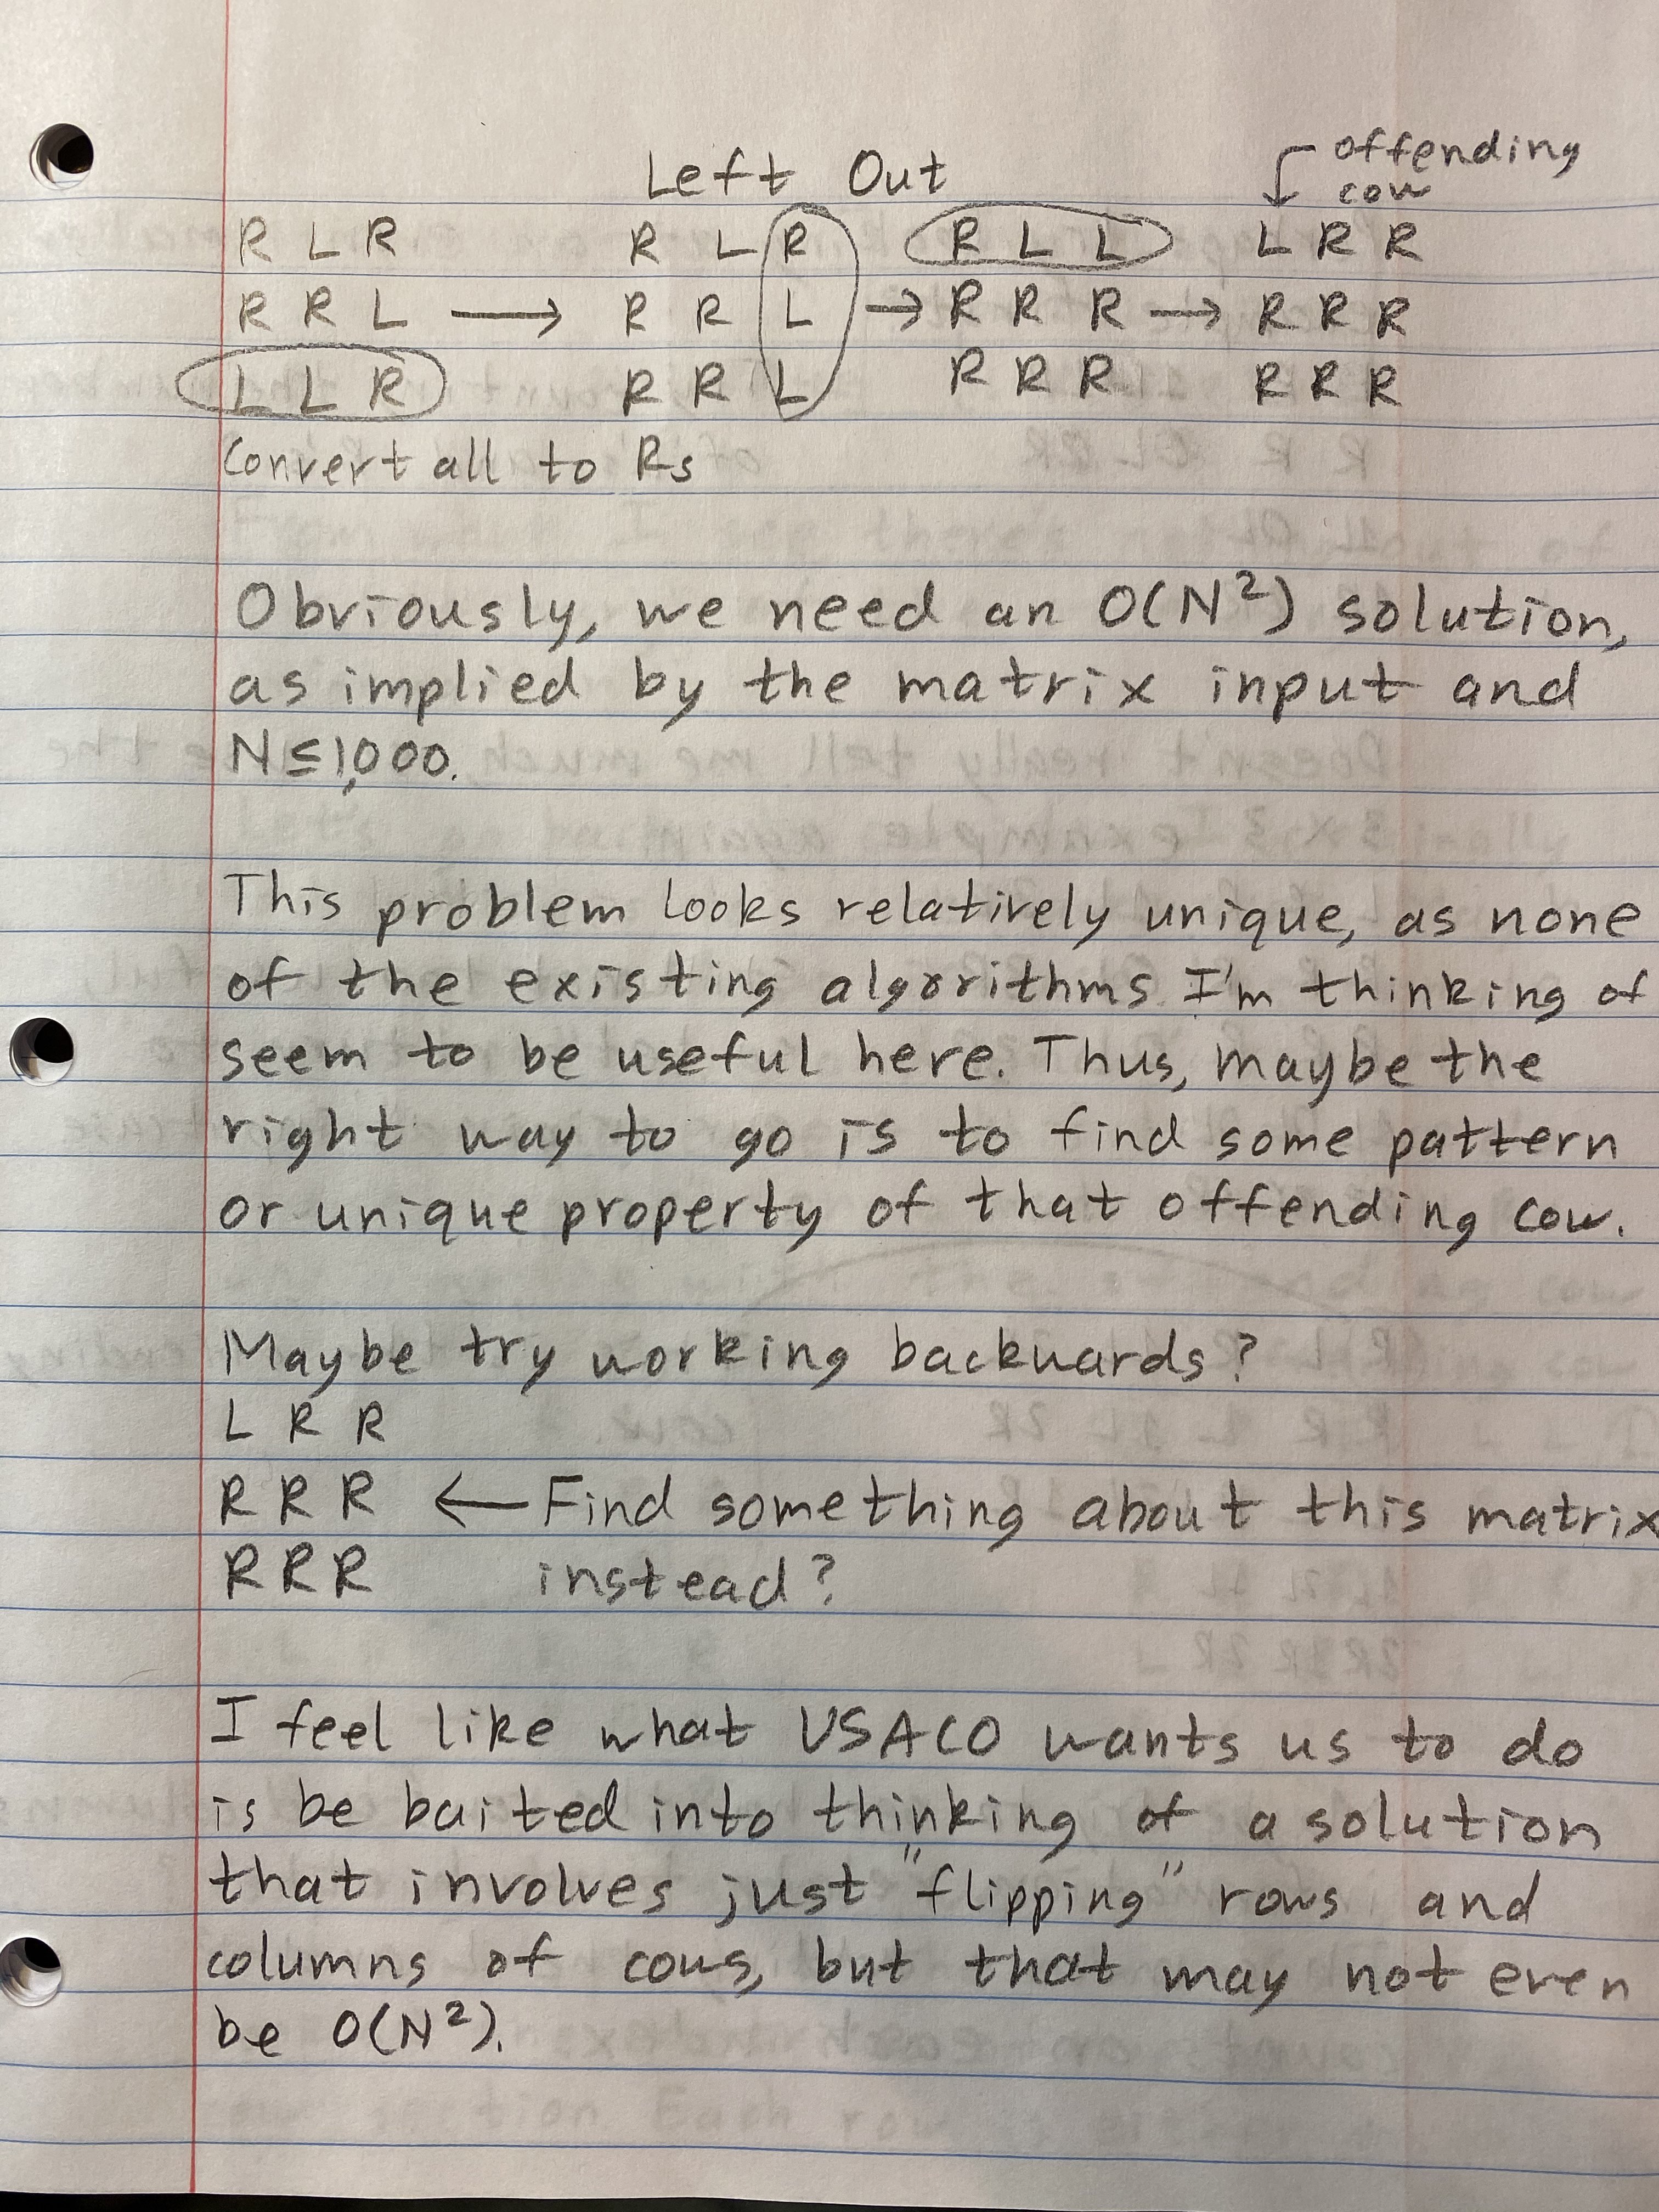 Left Out
offending
cow
R L R R L R R L L L R R
R R L → R R L → R R R → R R R
L L R R R L R R R R R R
Convert all to Rs
Obviously, we need an O(N²) solution,
as implied by the matrix input and
N≤1,000.
This problem looks relatively unique, as none
of the existing algorithms I'm thinking of
seem to be useful here. Thus, maybe the
right way to go is to find some pattern
or unique property of that offending cow.
Maybe try working backwards?
L R R
R R R ← Find something about this matrix
R R R instead?
I feel like what USACO wants us to do
is be baited into thinking of a solution
that involves just "flipping" rows and
columns of cows, but that may not even
be O(N²).